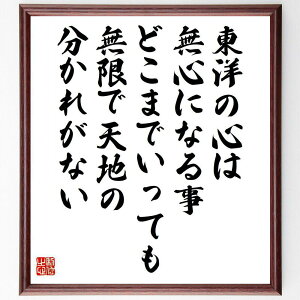 東洋の心は
無心になる事
どこまでいっても
無限で天地の
分かれがない